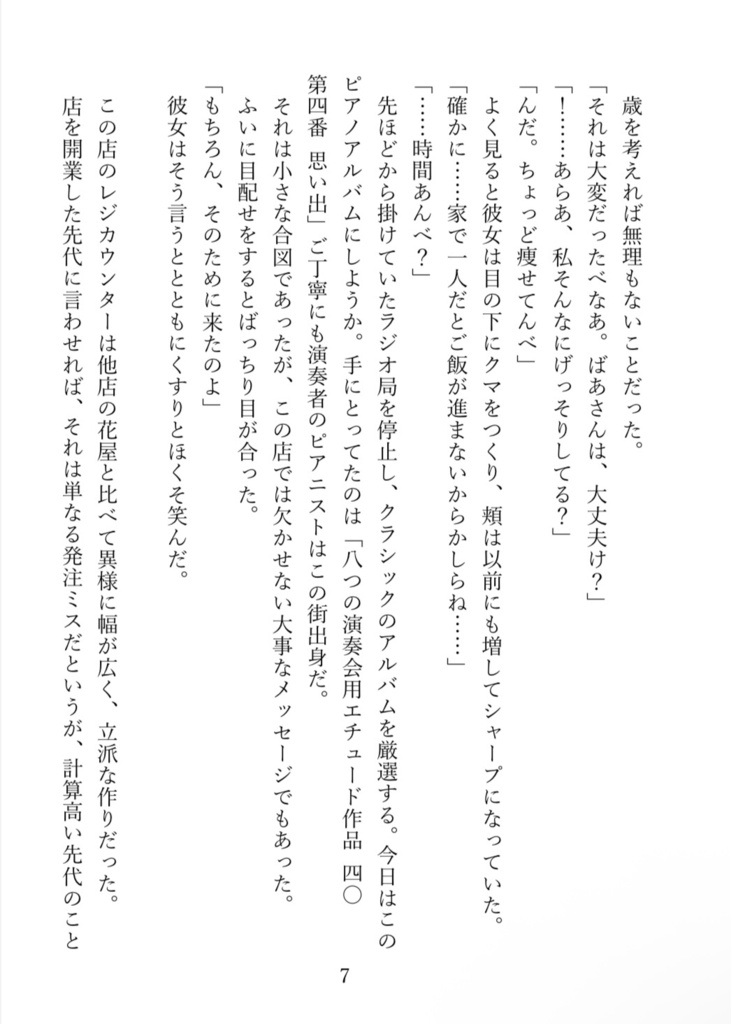 歳を考えれば無理もないことだった。
「それは大変だったべなあ。ばあさんは、大丈夫け？」
「！……あらあ、私そんなにげっそりしてる？」
「んだ。ちょっど痩せてんべ」
よく見ると彼女は目の下にクマをつくり、頬は以前にも増してシャープになっていた。
「確かに……家で一人だとご飯が進まないからかしらね……」
「……時間あんべ？」
先ほどから掛けていたラジオ局を停止し、クラシックのアルバムを厳選する。今日はこの
ピアノアルバムにしようか。手にとってたのは「八つの演奏会用エチュード作品 四〇
第四番 思い出」ご丁寧にも演奏者のピアニストはこの街出身だ。
それは小さな合図であったが、この店では欠かせない大事なメッセージでもあった。
ふいに目配せをするとばっちり目が合った。
「もちろん、そのために来たのよ」
彼女はそう言うとともにくすりとほくそ笑んだ。
この店のレジカウンターは他店の花屋と比べて異様に幅が広く、立派な作りだった。
店を開業した先代に言わせれば、それは単なる発注ミスだというが、計算高い先代のこと
7